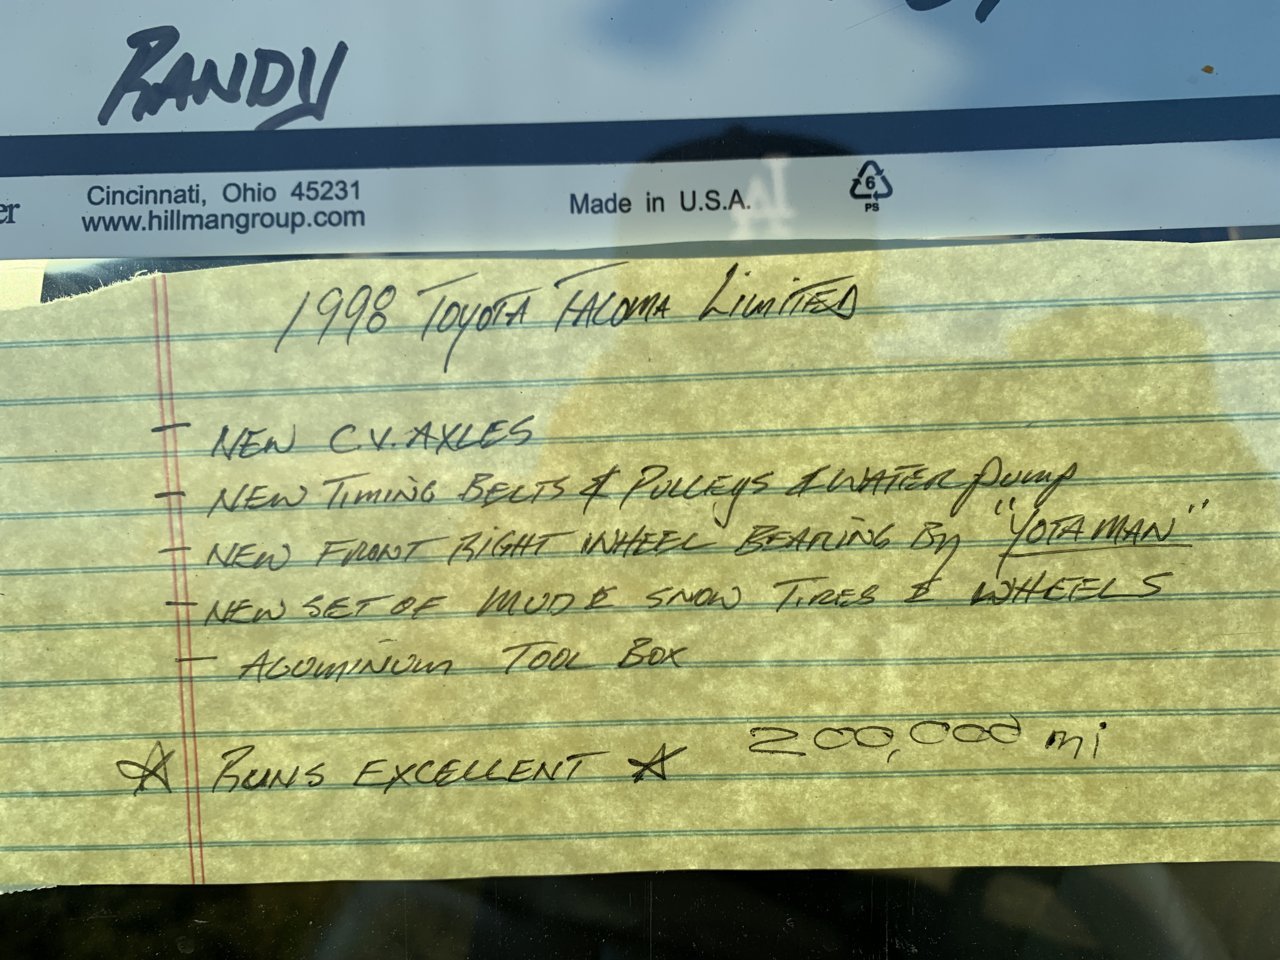 RANDY
Cincinnati, Ohio 45231
www.hillmangroup.com
Made in U.S.A.
6
PS
1998 TOYOTA TACOMA LIMITED
- NEW C.V. AXLES
- NEW TIMING BELTS & PULLEYS & WATER PUMP
- NEW FRONT RIGHT WHEEL BEARING By "YOTAMAN"
- NEW SET OF MUD & SNOW TIRES & WHEELS
- ALUMINUM TOOL BOX
☆ RUNS EXCELLENT ☆ 200,000 mi